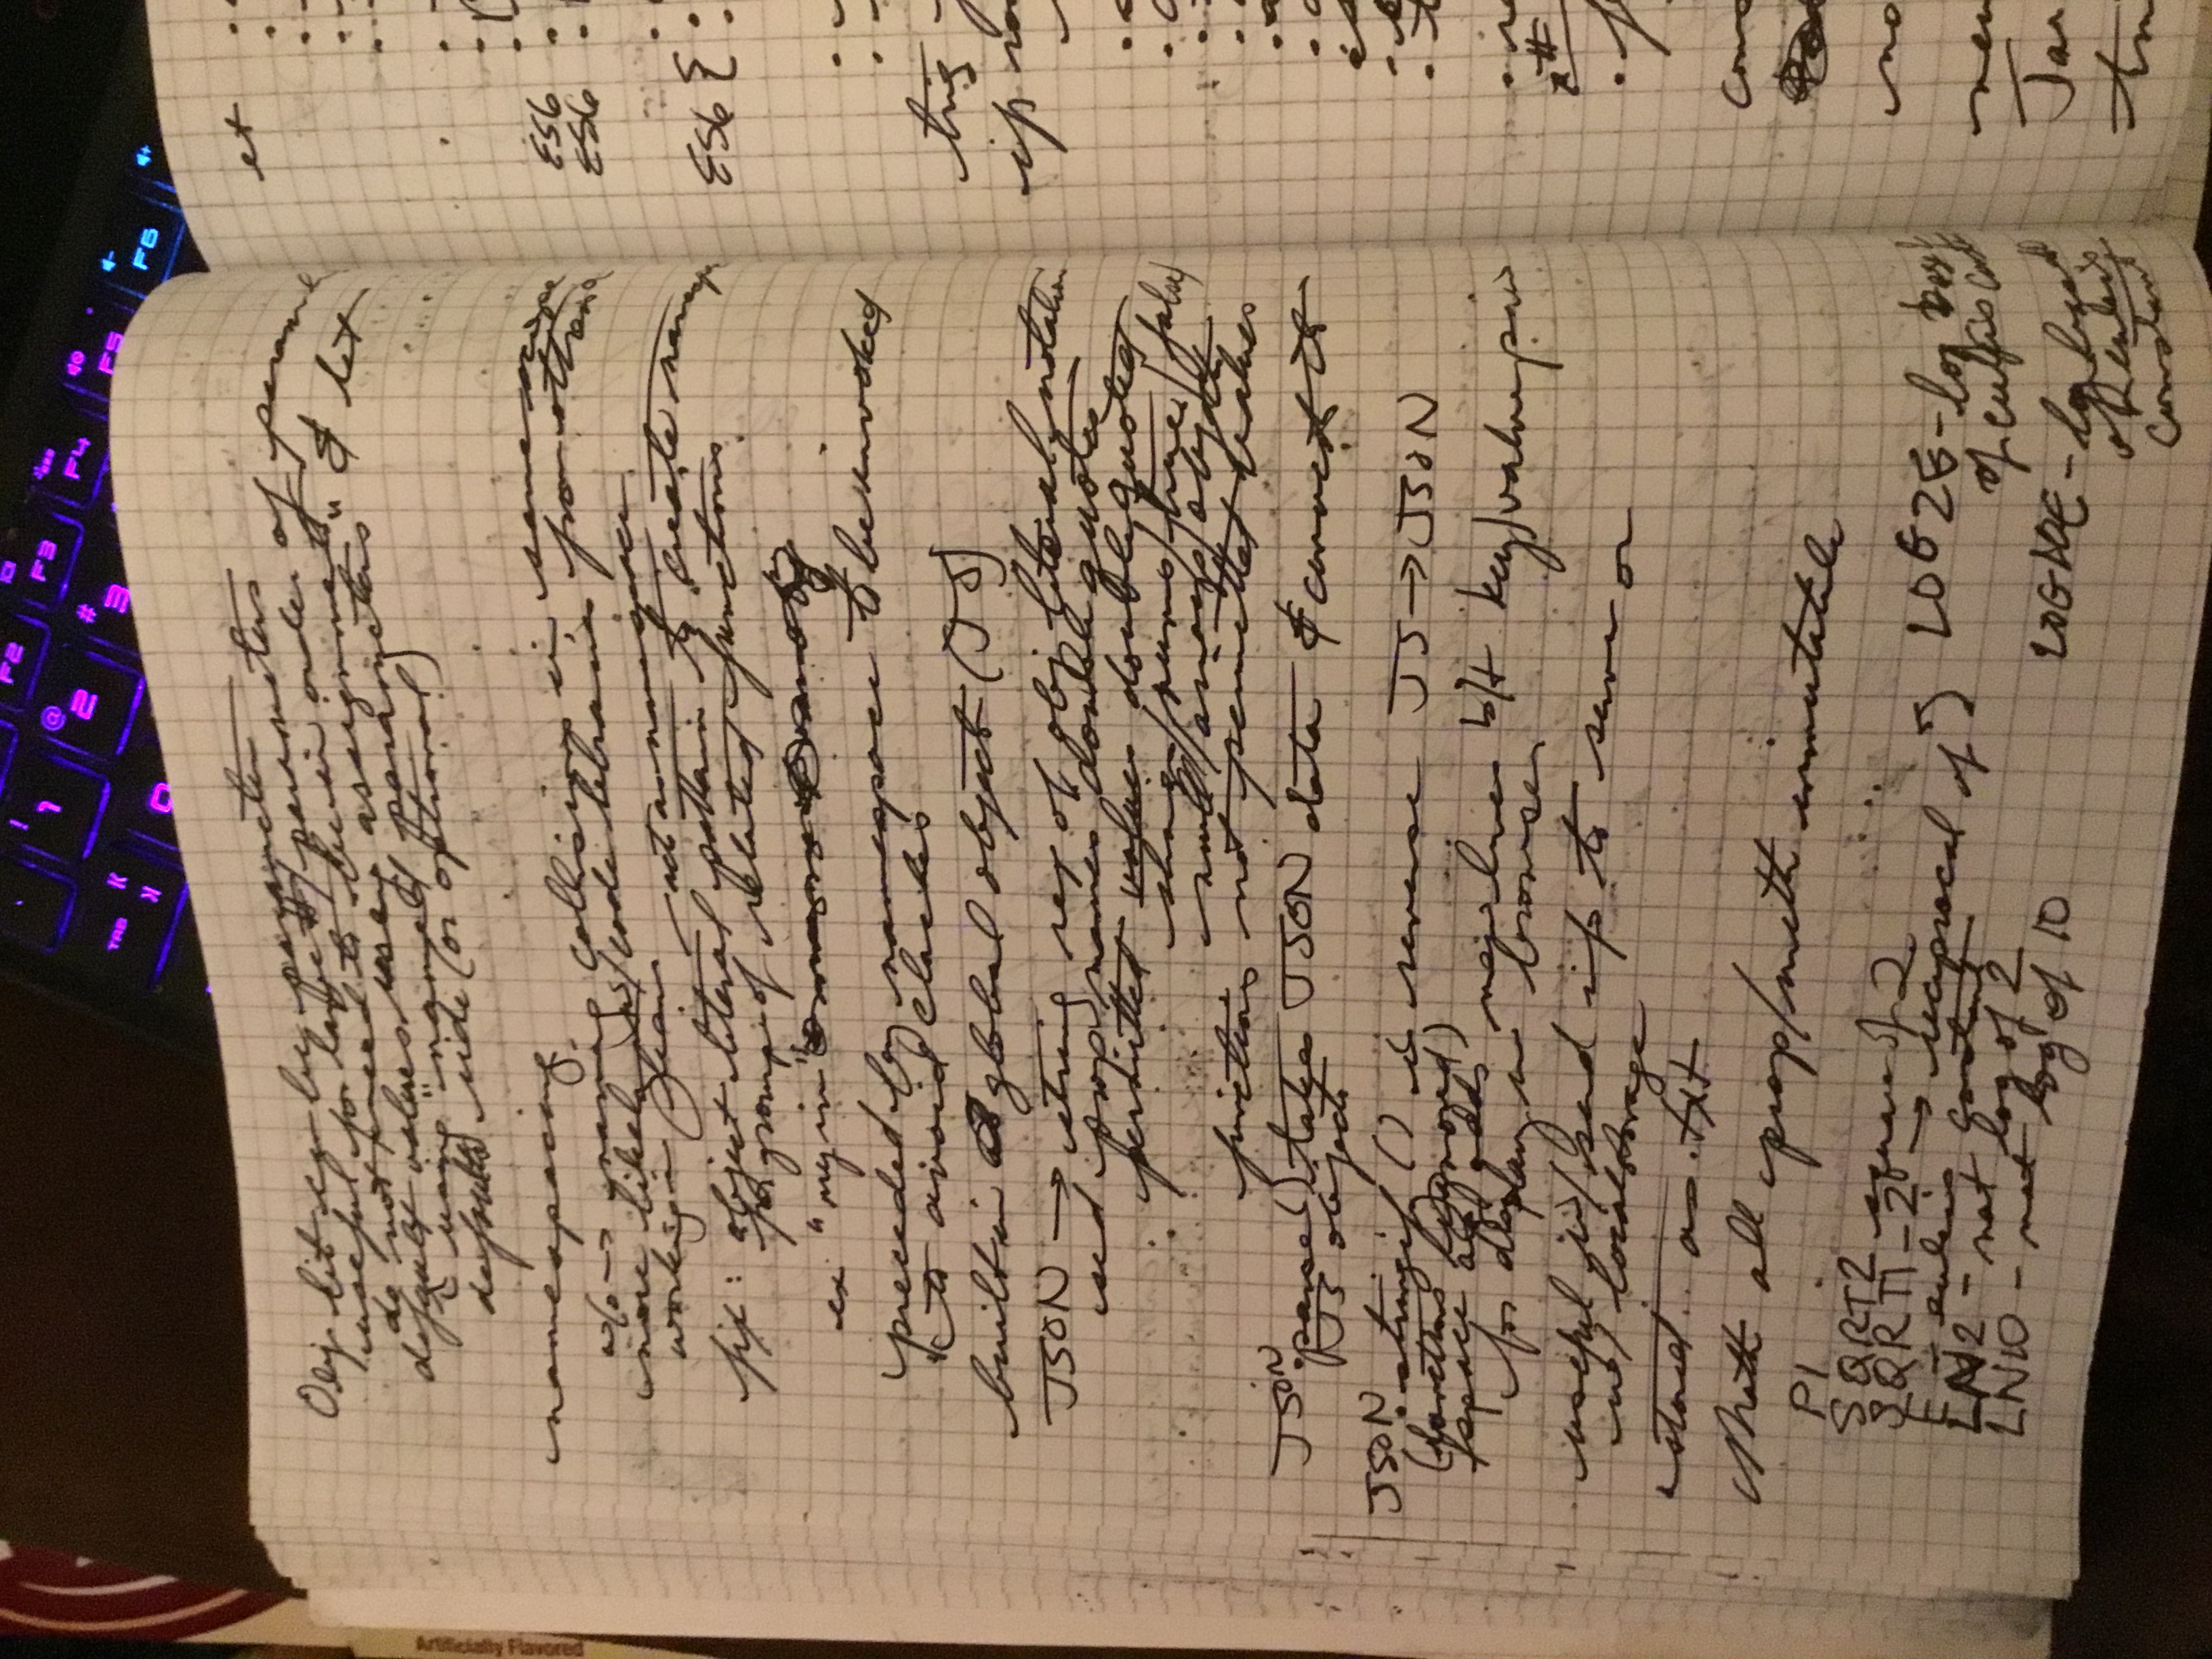 F2
F3
F4
F5
F6
! 1
@ 2
# 3
TAB
Q
Artificially Flavored
Obj lit can be parameter
useful for large # parameters
do not need to be in order of param
default values using assignment & let
using "named parameters"
defaults side (or optional)
namespacing
w/o → naming collisions in same scope
more likely w/ code libraries from others
working in team
act as namespace
fix: object literal pattern to create namesp
for group of related functions
ex "myin"
preceded by namespace to be invoked
to avoid clashes
built in global object (JS)
JSON → string rep of obj literal notation
prop names double quotes
permitted values double quoted
strings/nums/true/false/
null/arrays/objects
functions not permitted values
JSON.parse() takes JSON data & converts it
JS objects
JSON.stringify() is reverse JS → JSON
(functions ignored)
space arg adds new lines b/t key/value pairs
for display in browser
useful w/ send info to server or
w/ localstorage
stored as .txt
Math all prop/meth immutable
PI
SQRT2 square of 2
SQRT1-2 → reciprocal of
E - eulers constant
LN2 - nat log of 2
LN10 - nat log of 10
LOG2E - log base
of eulers const
LOG10E - log base 10
of eulers
constant
et
ES6
ES6
ES6 {
trig
ip
#
no